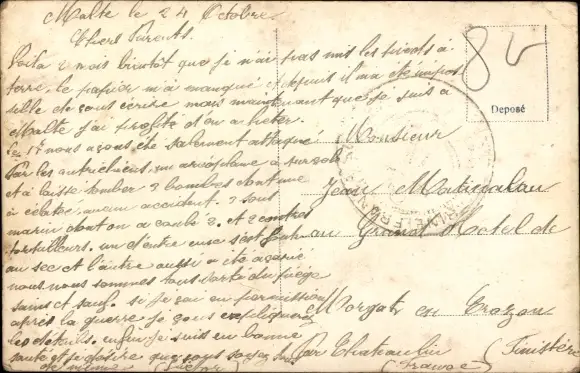 Malte le 24 Octobre
Chers Parents.
Voila 2 mois bientôt que je n'ai pas mis les pieds à
terre, le papier m'a manqué et depuis il m'a été impos
sible de vous écrire mais maintenant que je suis a
Malte j'ai profité d'en acheter.
Le 17 nous avons été salement attaqué
Par les autrichiens, un aréoplane à survolé
et à laissé tomber 2 bombes dont une
à éclaté, aucun accident. 3 sous
marin dont on a coulé 2. et 2 contre
torpilleurs. un d'entre eux s'est foutu
au sec et l'autre aussi a été avarié
nous nous sommes tous sorti du piège
sains et sauf. si je vai en permission
après la guerre je vous expliquerai
les details. enfin je suis en bonne
santé et je désire que vous soyez
de même
Deposé
Monsieur
Jean
au Grand Hotel de
Morgat en Crozon
par Chateaulin
(Finistère)
(France)